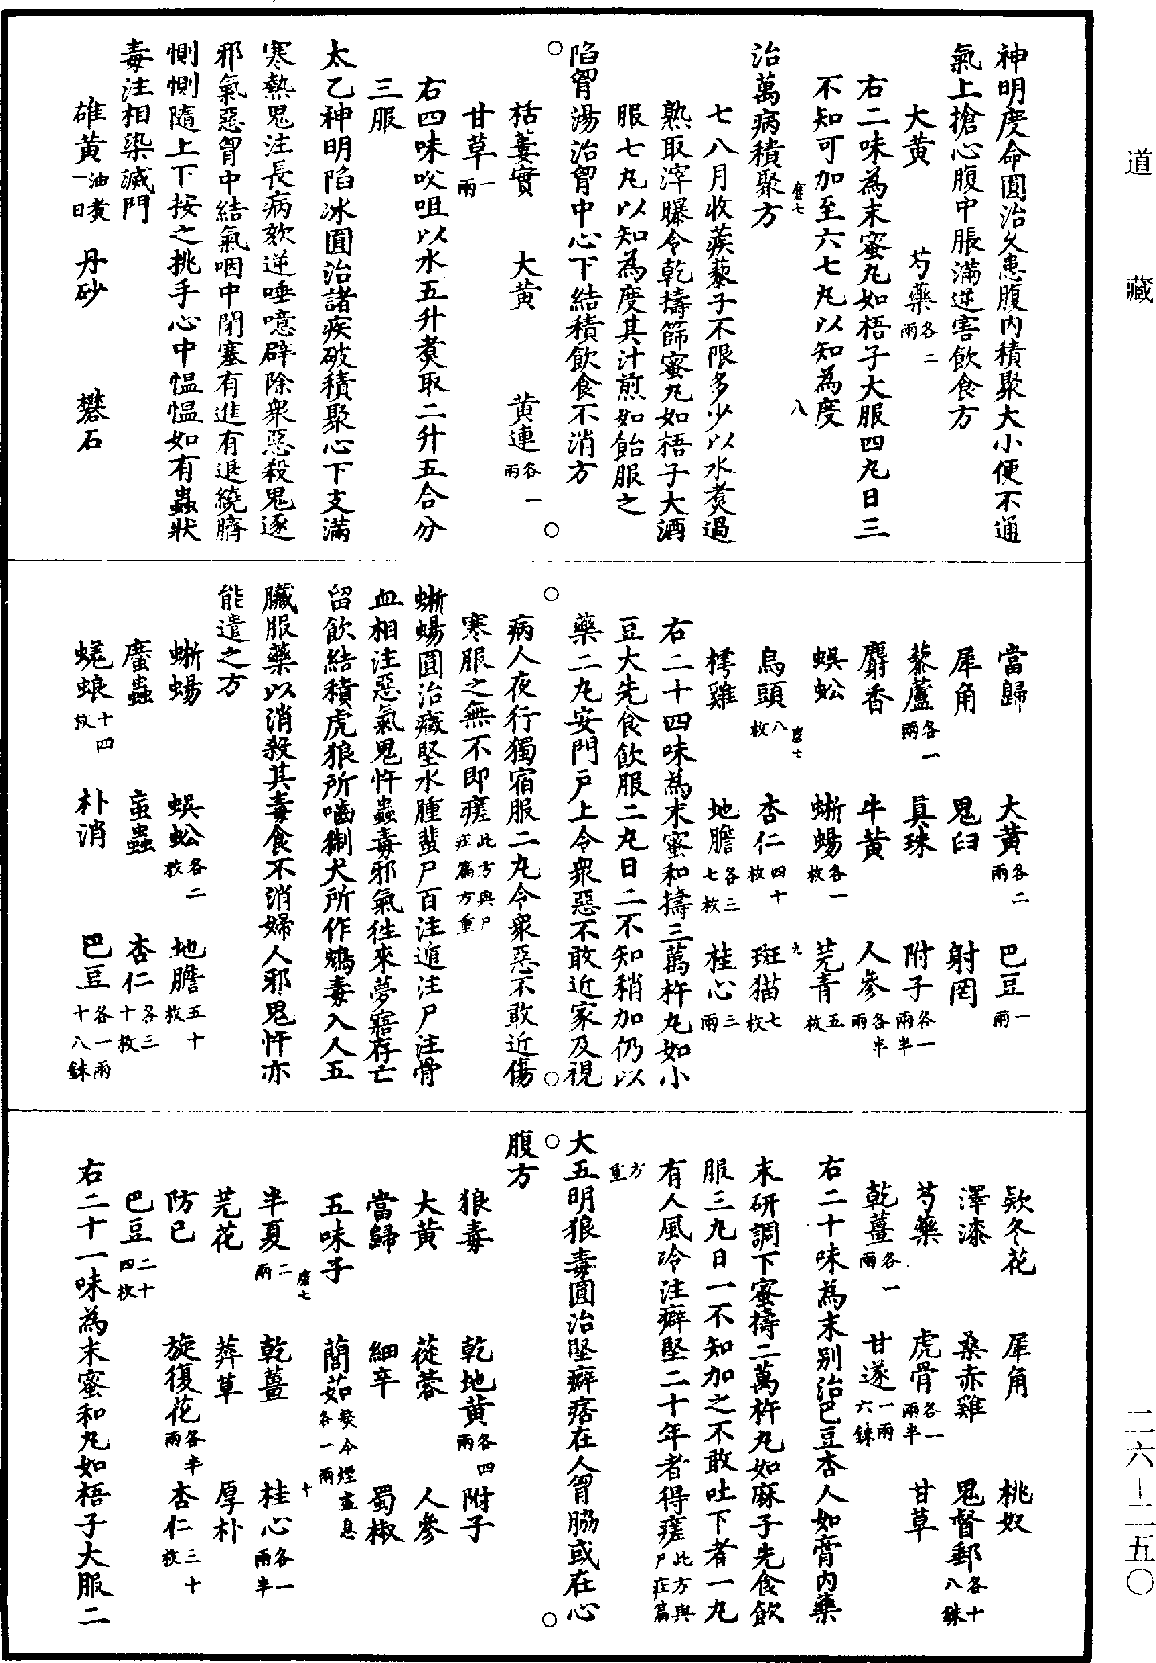 道藏
神明度命圓治久患腹內積聚大小便不通
氣上搶心腹中脹滿逆害飲食方
大黃 芍藥各二兩
右二味為末蜜丸如梧子大服四丸日三
不知可加至六七丸以知為度
塵七 八
治萬病積聚方
七八月收蒺藜子不限多少以水煮過
熟取滓曝令乾擣篩蜜丸如梧子大酒
服七丸以知為度其汁煎如飴服之
陷胷湯治胷中心下結積飲食不消方
栝蔞實 大黃 黃連各一兩
甘草一兩
右四味㕮咀以水五升煮取二升五合分
三服
太乙神明陷冰圓治諸疾破積聚心下支滿
寒熱鬼注長病欬逆唾噫辟除衆惡殺鬼逐
邪氣惡胷中結氣咽中閉塞有進有退繞臍
惻惻隨上下按之挑手心中愠愠如有蟲狀
毒注相染滅門
雄黃油煮一日 丹砂 礬石
當歸 大黃各二兩 巴豆一兩
犀角 鬼臼 射罔
藜蘆各一兩 真珠 附子各一兩半
麝香 牛黃 人參各半兩
蜈蚣 蜥蜴各一枚 芫青五枚
塵七 九
烏頭八枚 杏仁四十枚 斑猫七枚
樗雞 地膽各三七枚 桂心三兩
右二十四味為末蜜和擣三萬杵丸如小
豆大先食飲服二丸日二不知稍加仍以
藥二丸安門戶上令衆惡不敢近家及視
病人夜行獨宿服二丸令衆惡不敢近傷
寒服之無不即瘥此方與尸疰篇方重
蜥蜴圓治癥堅水腫蜚尸百注遁注尸注骨
血相注惡氣鬼忤蟲毒邪氣往來夢寤存亡
留飲結積虎狼所嚙猘犬所作鴆毒入人五
臟服藥以消殺其毒食不消婦人邪鬼忤亦
能遣之方
蜥蜴 蜈蚣各二枚 地膽五十枚
䗪蟲 蝱蟲 杏仁各三十枚
蜣蜋十四枚 朴消 巴豆各一兩十八銖
欵冬花 犀角 桃奴
澤漆 桑赤雞 鬼督郵各十八銖
芍藥 虎骨各一兩半 甘草
乾薑各一兩 甘遂一兩六銖
右二十味為末別治巴豆杏人如膏內藥
末研調下蜜擣二萬杵丸如麻子先食飲
服三丸日一不知加之不敢吐下者一丸
有人風冷注癖堅二十年者得瘥此方與尸疰篇
方重
大五明狼毒圓治堅癖痞在人胷脇或在心
腹方
狼毒 乾地黃各四兩 附子
大黃 蓯蓉 人參
當歸 細辛 蜀椒
五味子 䕡茹熬令煙盡息各一兩
塵七 十
半夏二兩 乾薑 桂心各一兩半
芫花 葬草 厚朴
防已 旋復花各半兩 杏仁三十枚
巴豆二十四枚
右二十一味為末蜜和丸如梧子大服二
二六—二五〇